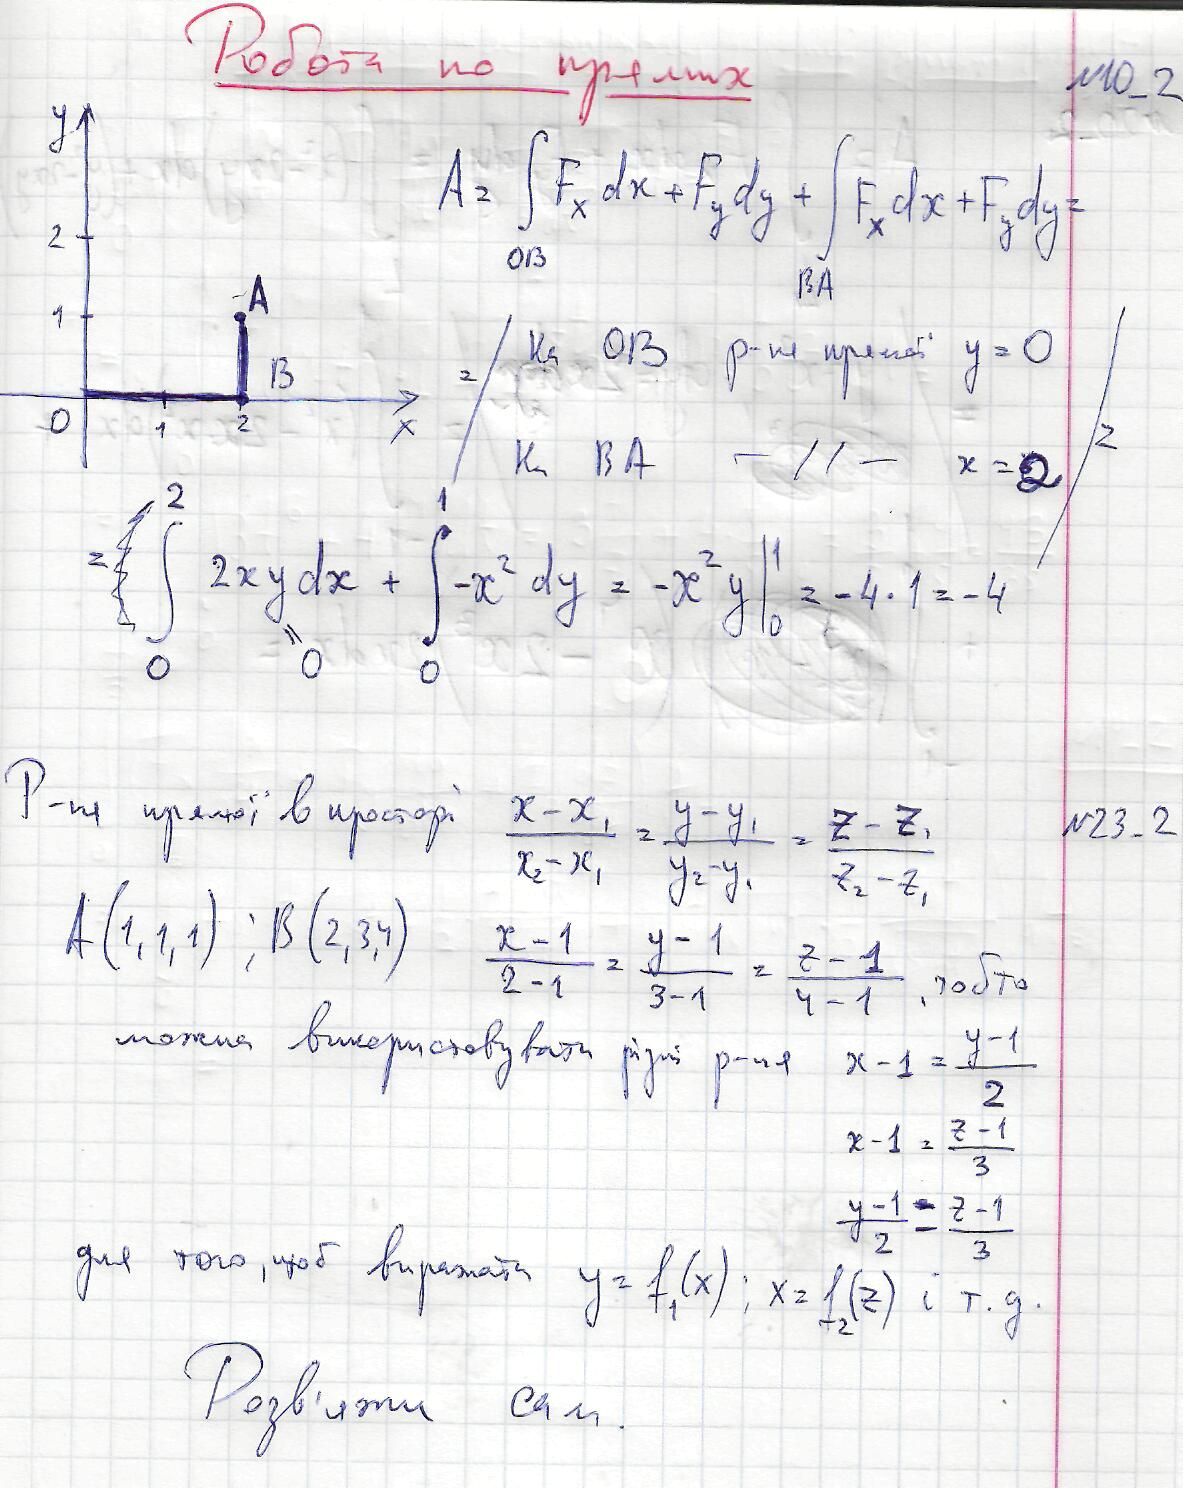 Робота по прямих
№10_2
y
A = ∫_{OB} F_x dx + F_y dy + ∫_{BA} F_x dx + F_y dy =
2
A
1
= / На OB р-не прямої y = 0
B
O 1 2 x
На BA — // — x = 2 / =
= ∫_0^2 2xy dx + ∫_0^1 -x² dy = -x² y |_0^1 = -4·1 = -4
"0
Р-ня прямої в просторі (x - x₁)/(x₂ - x₁) = (y - y₁)/(y₂ - y₁) = (z - z₁)/(z₂ - z₁) №23_2
A(1,1,1) ; B(2,3,4) (x - 1)/(2 - 1) = (y - 1)/(3 - 1) = (z - 1)/(4 - 1) , тобто
можна використовувати різні р-ня x - 1 = (y - 1)/2
x - 1 = (z - 1)/3
(y - 1)/2 = (z - 1)/3
для того, щоб виражати y = f₁(x) ; x = f₂(z) і т.д.
Розв'яжи сам.